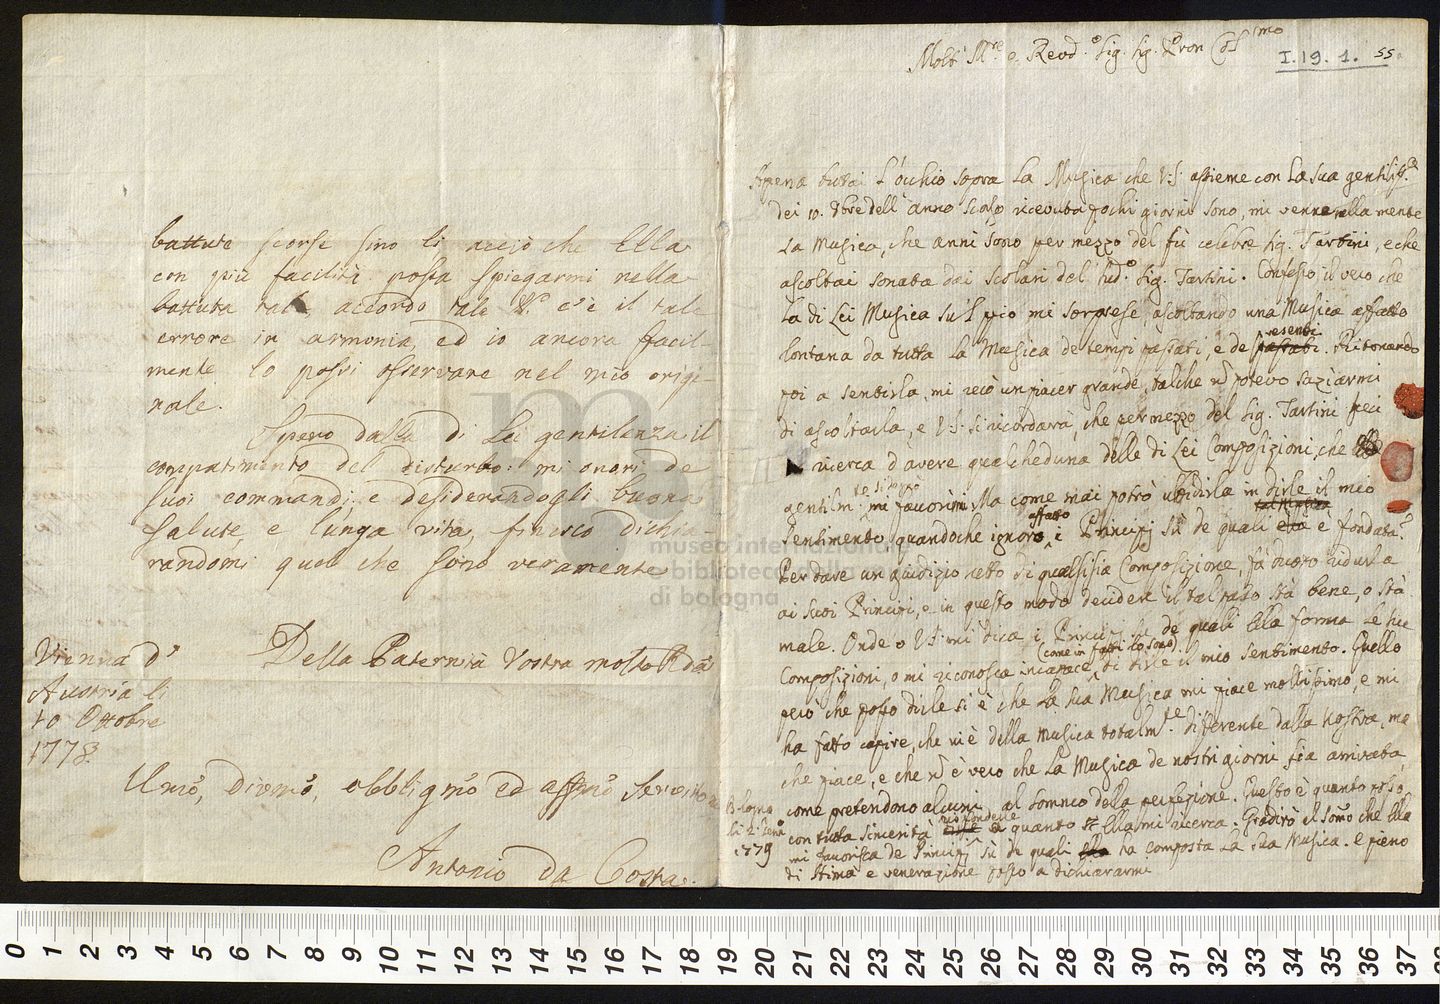 battute scorse sino lì acciò che Ella
con più facilità possa spiegarmi nella
battuta tal accordo tale V.º c'è il tale
errore in armonia, ed io ancora facil-
mente lo possi osservare nel mio origi-
nale.
Spero dalla di Lei gentilenza il
compatimento del disturbo: mi onori de
suoi commandi, e desiderandogli buona
salute, e lunga vita, finisco dichia-
randomi quel che sono veramente
Della Paternità Vostra molto Rda
Vienna d'
Austria li
10 Ottobre
1778.
Umõ, Divmõ, obbligmõ ed affmõ servit
Antonio da Costa.
I. 19. 1. 55.
Molt' Mre e Revd.º Sig. Sig. Pron Col mo
Appena buttai L'occhio sopra La Musica che V.S. assieme con La sua gentiliss.a
dei 10. Obre dell' anno scorso ricevuta pochi giorni sono, mi venne nella mente
La Musica, che anni sono per mezzo del fù celebre Sig. Tartini, e che
ascoltai sonata dai scolari del sud.º Sig. Tartini. Confesso il vero che
La di Lei Musica sul p̃io mi sorprese, ascoltando una Musica affatto
lontana da tutta La Musica de tempi passati, e de passati presenti. Ritornando
poi a sentirla, mi recò un piacer grande, talche ñ potevo saziarmi
di ascoltarla, e V.S. si ricordarà, che per mezzo del Sig. Tartini feci
ricerca d'avere qualcheduna delle di Lei Composizioni, che
gentilm.te mi favorì. Ma come mai potrò ubidirla in dirle il mio
sentimento, quandoche ignoro affatto i Principj sù de quali è fondata?
Per dare un giudizio retto di qualsisia Composizione, fà d'uopo ridurla
ai suoi Principj, e in questo modo decidere il tal passo stà bene, o stà
male. Onde o V.S. mi dica i Principj sù de quali Ella forma le sue
Composizioni, o mi riconosca incapace (come in fatti lo sono) di dirle il mio sentimento. Quello
però che posso dirle si è che La sua Musica mi piace moltissimo, e mi
ha fatto capire, che vi è della Musica totalm.te diferente dalla nostra, ma
che piace, e che ñ è vero che La Musica de nostri giorni sia arrivata,
come pretendono alcuni, al sommo della perfezione. Questo è quanto posso
con tutta sincerità rispondere a quanto Ella mi ricerca. Gradirò il som̃o che Ella
mi favorisca de Principj sù de quali ha composta La sua Musica. e pieno
di stima e venerazione posso a dichiararmi
Bologna
li 2. Gen.
1779
museo internazionale
e biblioteca della musica
di bologna
0 1 2 3 4 5 6 7 8 9 10 11 12 13 14 15 16 17 18 19 20 21 22 23 24 25 26 27 28 29 30 31 32 33 34 35 36 37